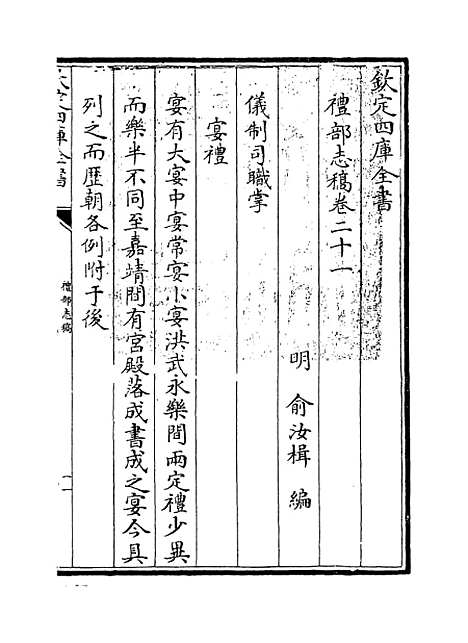 欽定四庫全書
禮部志稿卷二十一
明 俞汝楫 編
儀制司職掌
宴禮
宴有大宴中宴常宴小宴洪武永樂間兩定禮少異
而樂半不同至嘉靖間有宮殿落成書成之宴今具
列之而歷朝各例附于後
欽定四庫全書
禮部志稿
一